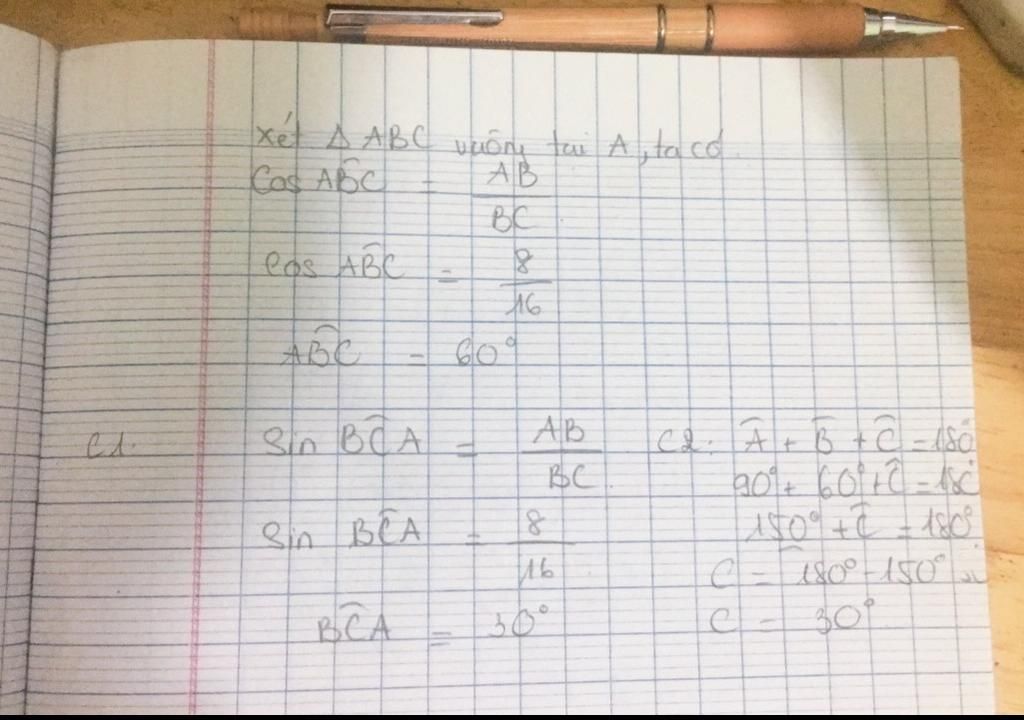 Xét Δ ABC vuông tại A, ta có
Cos ABC = AB/BC
cos ABC = 8/16
ABC = 60°
C1. Sin BCA = AB/BC
Sin BCA = 8/16
BCA = 30°
C2: A + B + C = 180
90° + 60° + C = 180
150° + C = 180°
C = 180° - 150°
C = 30°